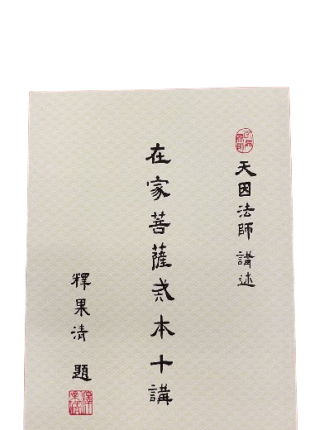 天因法師 講述
在家菩薩戒本十講
釋果清 題